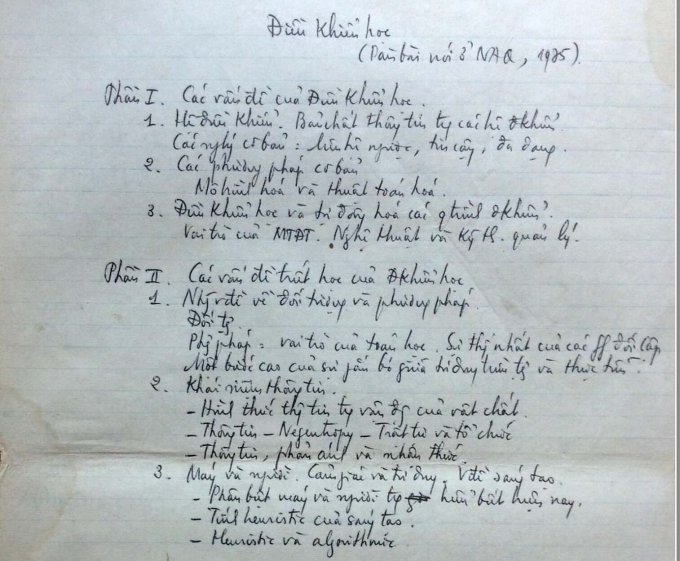 Điều Khiển học
(Dàn bài nói ở NAQ, 1975).
Phần I. Các vấn đề của Điều Khiển học.
1. Hệ điều Khiển. Bản chất thông tin tg các hệ đkhiển.
Các nglý cơ bản: liên hệ ngược, tin cậy, đa dạng.
2. Các phương pháp cơ bản
Mô hình hoá và thuật toán hoá.
3. Điều Khiển học và tự động hoá các qtrình đkhiển.
Vai trò của MTĐT. Nghệ thuật và Kỹ th. quản lý.
Phần II. Các vấn đề triết học của ĐKhiển học
1. Nhg vđề về đối tượng và phương pháp.
Đối tg
Phg pháp: vai trò của toán học. Sự thg nhất của các ff đối lập
Một bước cao của sự gắn bó giữa tư duy trừu tg và thực tiễn.
2. Khái niệm thông tin.
- Hình thức thg tin tg vận đg của vật chất.
- Thông tin - Negentropy - Trật tự và tổ chức
- Thông tin, phản ánh và nhận thức.
3. Máy và người. Cảm giác và tư duy. Vđề sáng tạo.
- Phân biệt máy và người tg hiểu biết hiện nay.
- Tính heuristic của sáng tạo.
- Heuristic và algorithmic